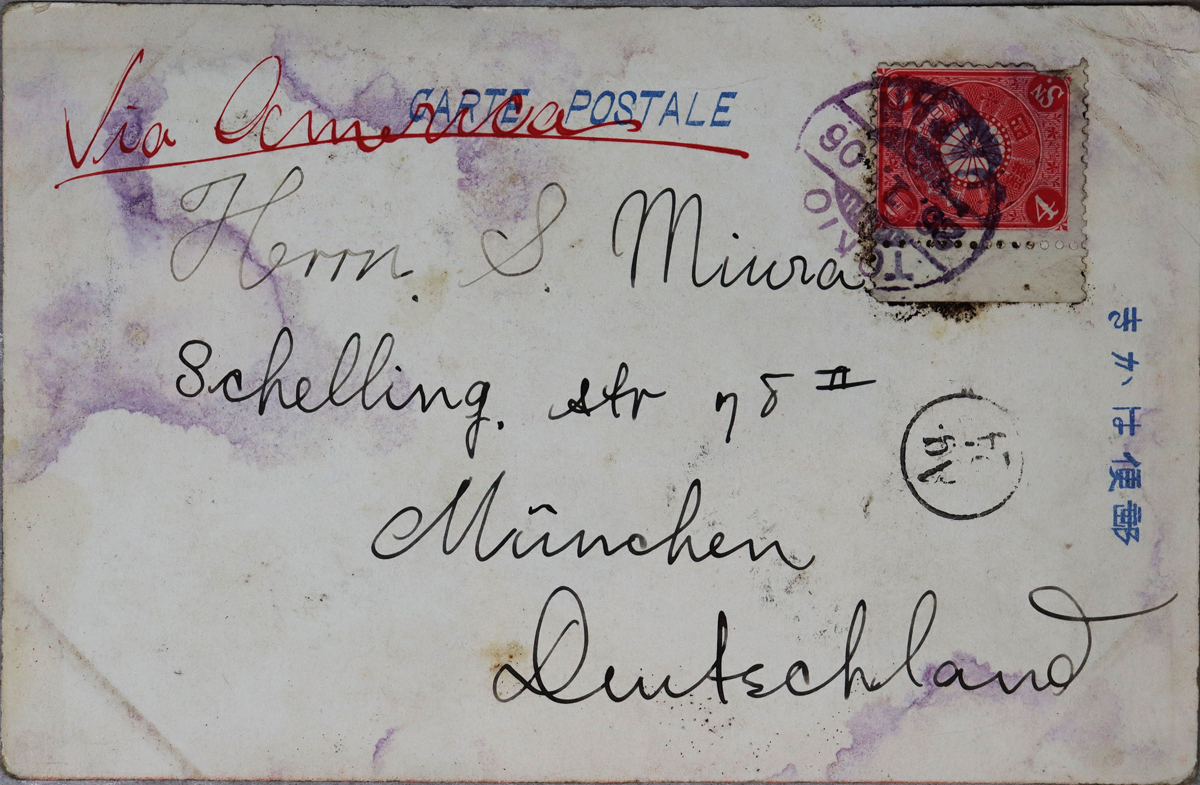 Via America
CARTE POSTALE
Herrn. S. Miura
Schelling. str 78 II
München
Deutschland
きかは便郵
4
Sn
TOKIO
06